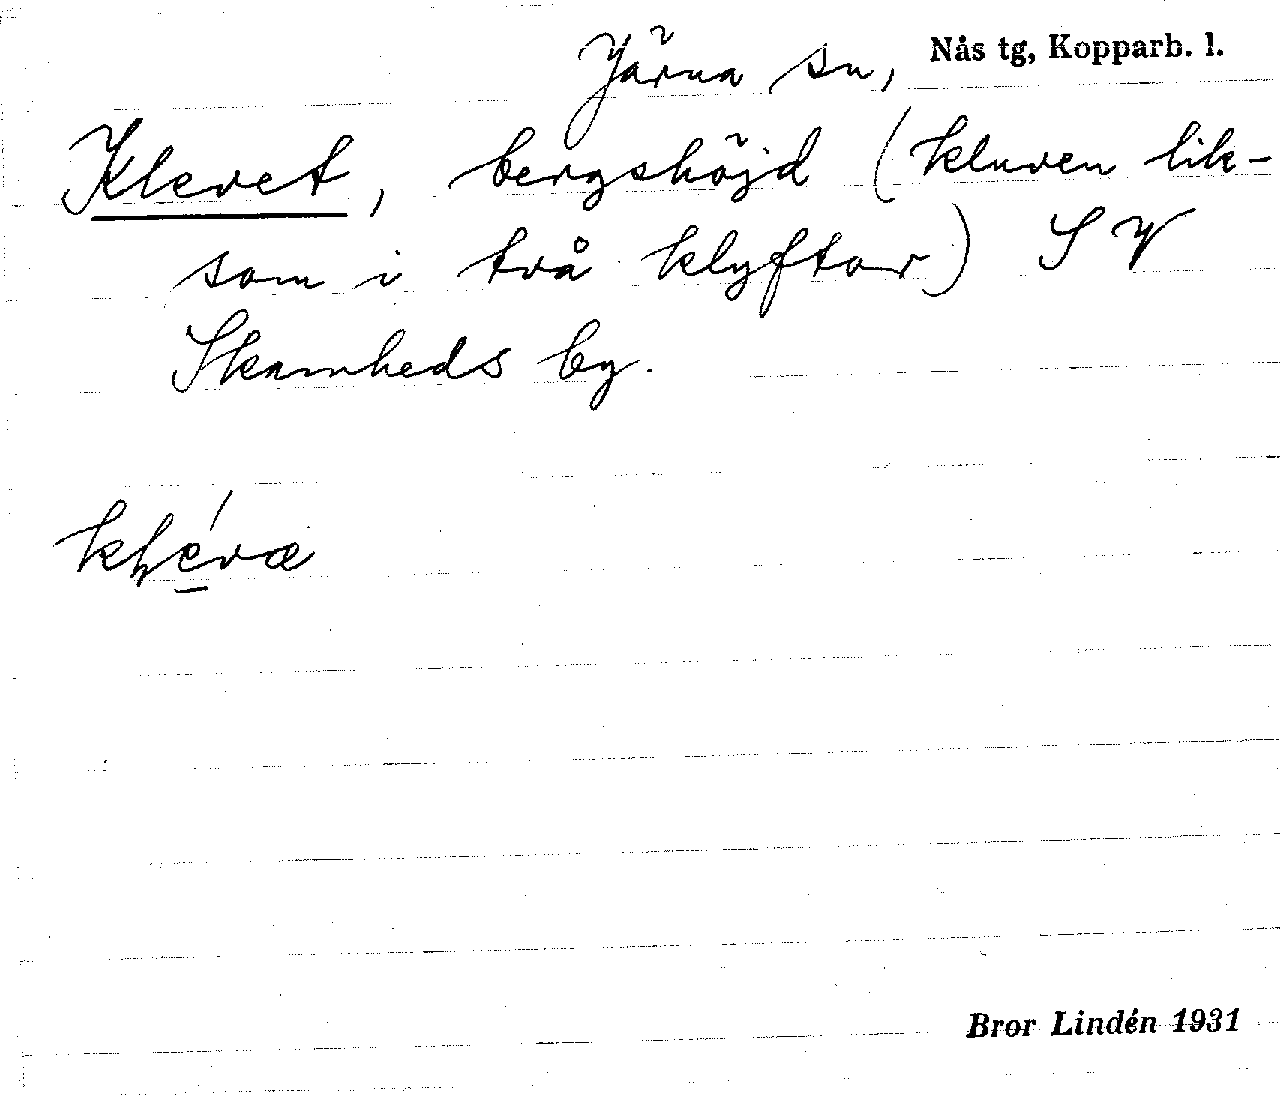 Järna sn, Nås tg, Kopparb. l.
Klevet, bergshöjd (kluven lik-
som i två klyftor) SV
Skamheds by.
kḷé̱væ
Bror Lindén 1931